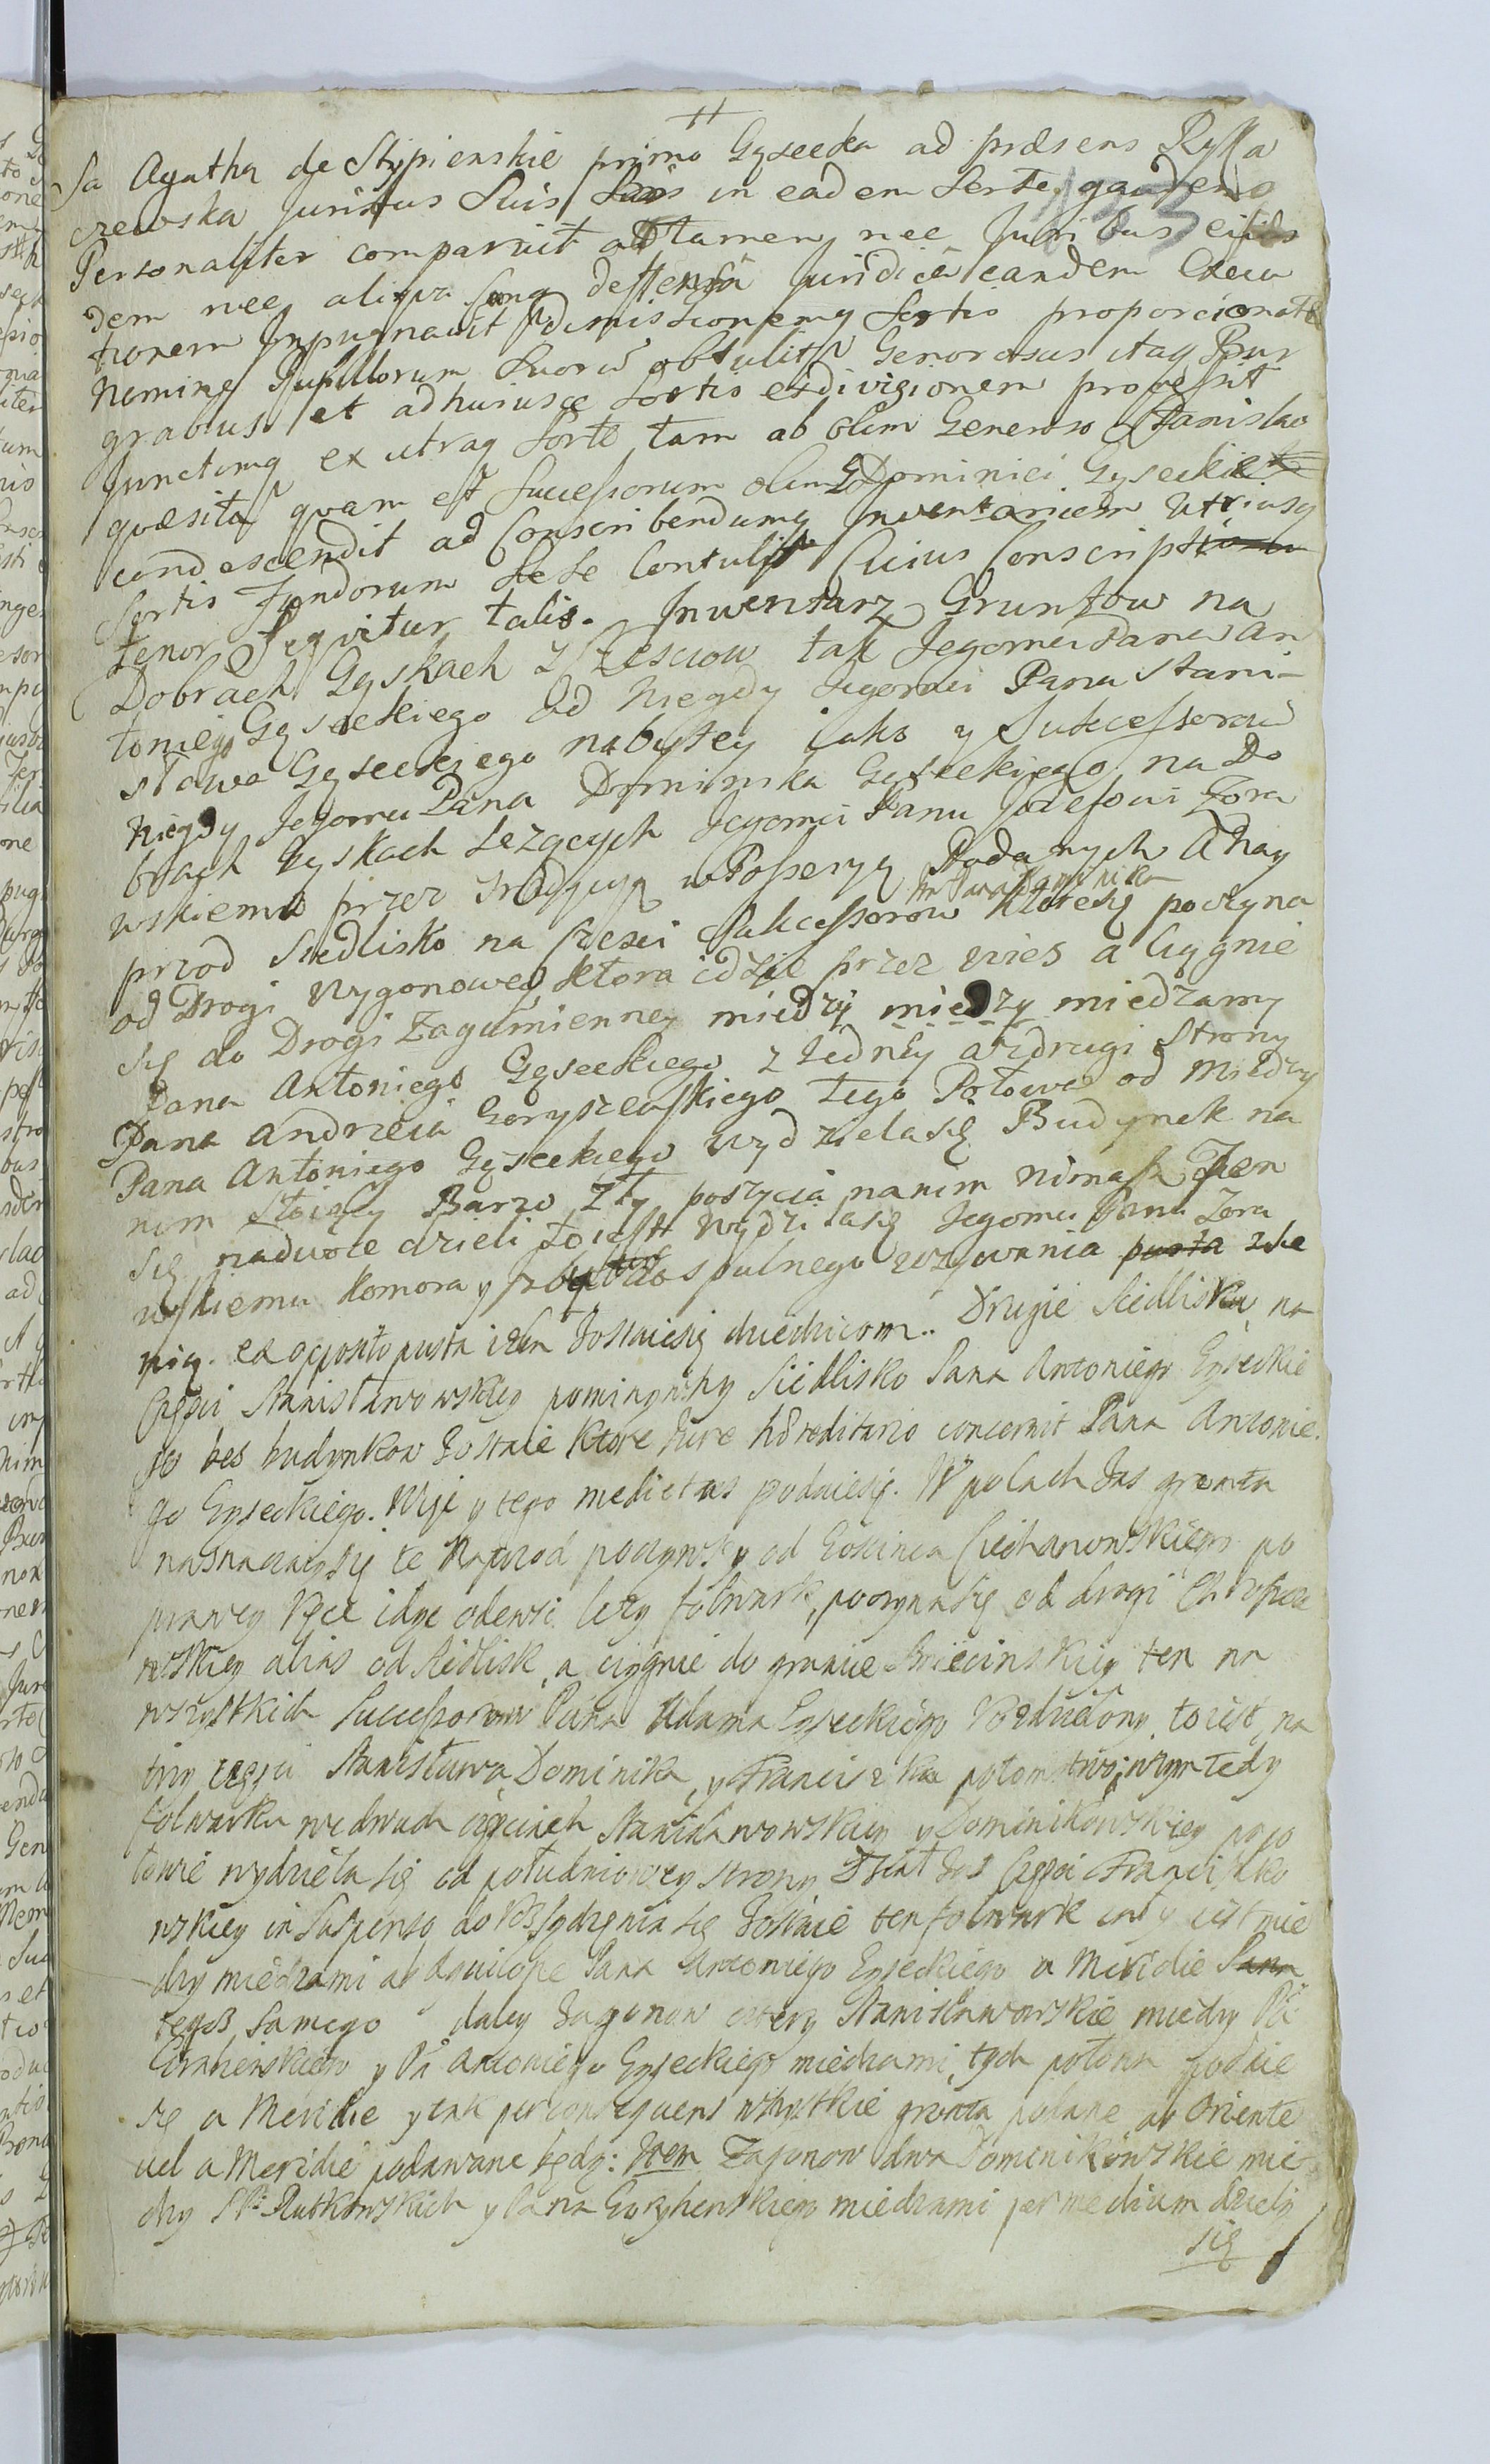 sa Agatha de Stypienskie primo Gąsecka ad præsens Ryssa
czewska Juribus Suis in eadem Sorte gaudens
Personaliter comparuit attamen nec Juribus eius
dem nec aliqua deffensa Juridica eandem Execu
tionem Impugnavit dimissionemq Sortis proporcionate
Nomine Pupillorum Suorū obtulit Generosus itaq Bur
grabius et adhuiusce Sortis exdivisionem processit
Junctimq ex utraq Sorte tam ab olim Generoso Stanislao
quæsita quam est Successorum olim G Dominici Gąseckie
condescendit ad Conscribendumq Inventarium Utriusq
Sortis Fundorum Sese Contulit Cuius Conscripti
tenor Seqvitur talis. Inwentarz Gruntow na
Dobrach Gąskach z Częsciow tak Jegomci Pana An
toniego Gąseckiego od Niegdy Jegomci Pana Stani-
sława Gąseckiego nabytey iako y Sukcessorow
Niegdy Jegomci Pana Dominika Gąseckiego na Do
brach Gąskach Lezących Jegomci Panu Jozefowi Zora
wskiemu przez Tradycyą w Possesyą Podanych a Nay
przod Siedlisko na Częsci Sukcessorow Pana Dominika ktore się poczyna
od Drogi Wygonowey ktora idzie przez wies a Ciągnie
się do Drogi Zagumienney miedzy miedzy miedzamy
Pana Antoniego Gąseckiego z iedney a z drugi Strony
Pana Andrzeia Goryszewskiego tego Połowa od Miedzy
Pana Antoniego Gąseckiego wydziela się Budynek na
nim stoiący Barzo zły poszycia na nim nimasz Ten
się nadwoie dzieli to iest wydzila się Jegomci Panu Zora
wskiemu Komora y Izba do spulnego uzywania pusta z sie
nią. ex opposito pusta izba Zostaie się dziedzicom. Drugie Siedlisko na
Częsci Stanisławowskiey pominąwszy Siedlisko Pana Antoniego Gąseckie
go bes budynkow Zostaie ktore Jure hæreditario concernit Pana Antonie
go Gąseckiego. Więc y tego medietas podaie się. W polach Zas grunta
nasnaczaią się te Naprzod począwszy od Goscinca Ciechanowskiego po
prawey Ręce idąc odewsi lezy folwark, poczyna się od drogi
wskiey alias od Siedlisk, a ciągnie do granic Brzecinskiey ten na
wszystkich Successorow Pana Adama Gąseckiego Rozdzielony to iest na
trzy częsci Stanisława Dominika, y Franciszka potomstwo, w tym tedy
folwarku we dwuch częsciach Stanisławowskiey y Dominikowskiey po po
łowie wydziela się od południowey strony Zas Częsci Francisko
wskiey in Suspenso do Rossądzenia się Zostaie ten folwark cały iest mie
dzy miedzami ab Aquilone Pana Antoniego Gąseckiego a Meridie Pana
tegoz Samego daley Zagonow cztery Stanisławowskie miedzy Pā
y Pā Antoniego Gąseckiego miedzami, tych połowa podaie
się a Meridie y tak per consequens wszystkie grunta polane ab Oriente
vel a Meridie podawane będą: Item Zagonow dwa Dominikowskie mie
dzy Pp: Rutkowskich y Pana miedzami per medium dzielą
się